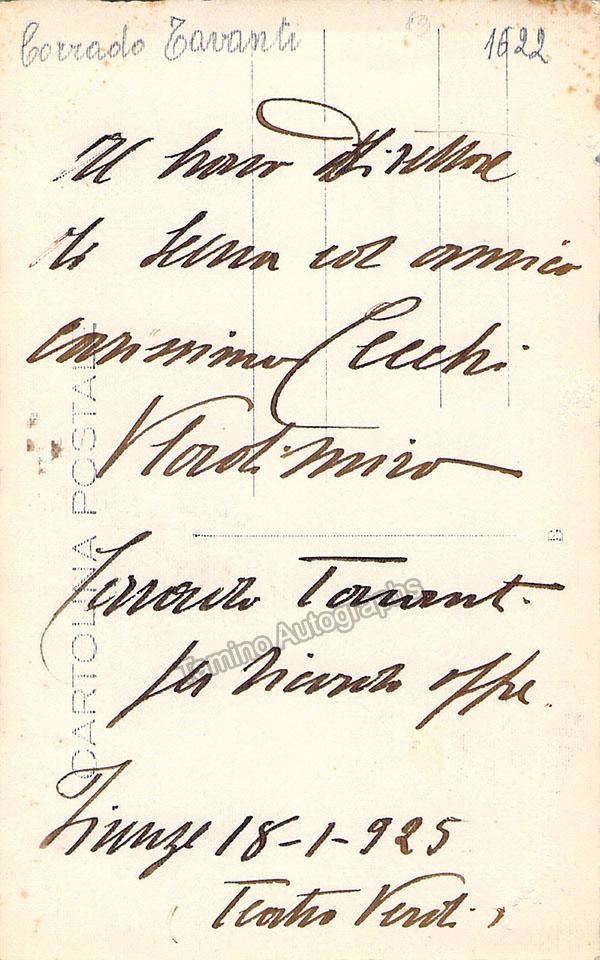 Corrado Tavanti
1622
Al bravo Direttore
di scena ed amico
carissimo Cecchi
Vladimiro
Corrado Tavanti
per ricordo offre.
Firenze 18-1-925
Teatro Verdi.
CARTOLINA POSTALE
B
Tamino Autographs